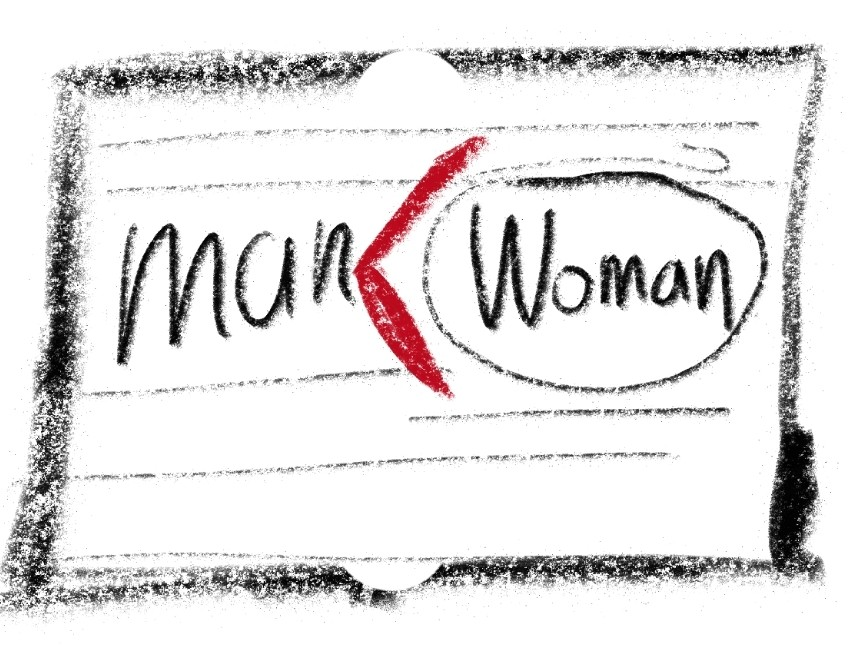 Man < Woman